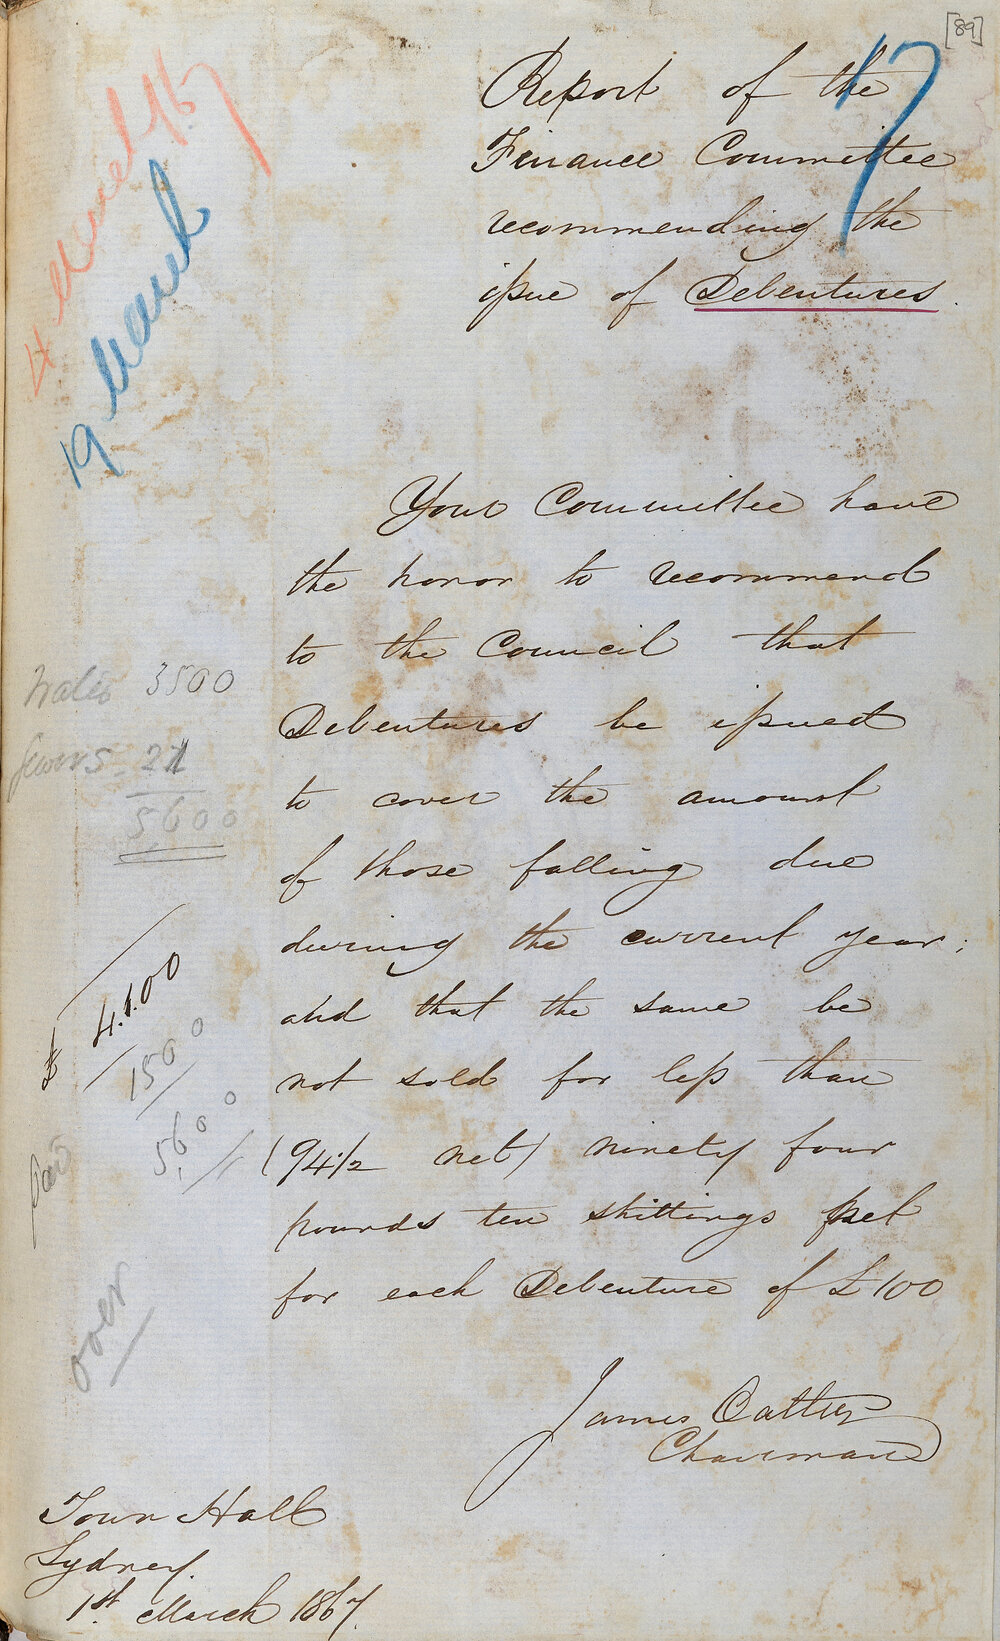 [89]
17
Report of the
Finance Committee
recommending the
issue of Debentures.
4 March /67
19 March
Your Committee have
the honor to recommend
to the Council that
Debentures be issued
to cover the amount
of those falling due
during the current year;
and that the same be
not sold for less than
(94½ net) ninety four
pounds ten shillings net
for each Debenture of £100
James Oatley
Chairman
Town Hall
Sydney.
1st March 1867.
3500
Sewers 21
5600
£ 4.1.00
1500
5600
over